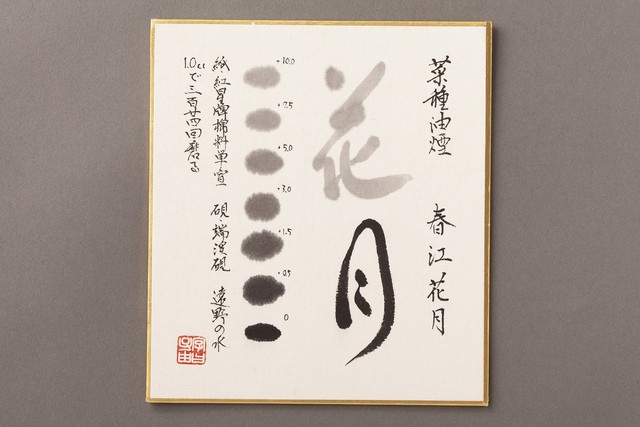 菜種油煙 春江花月
花月
+10.0
+7.5
+5.0
+3.0
+1.5
+0.5
0
紙・紅星牌棉料単宣 硯・端渓硯 遠野の水
1.0ccで三百廿四回磨る